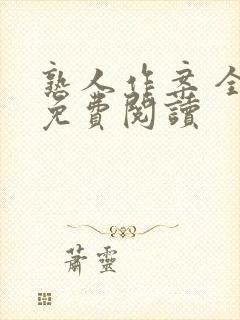 熟人作案全
免費閱讀
蕭靈